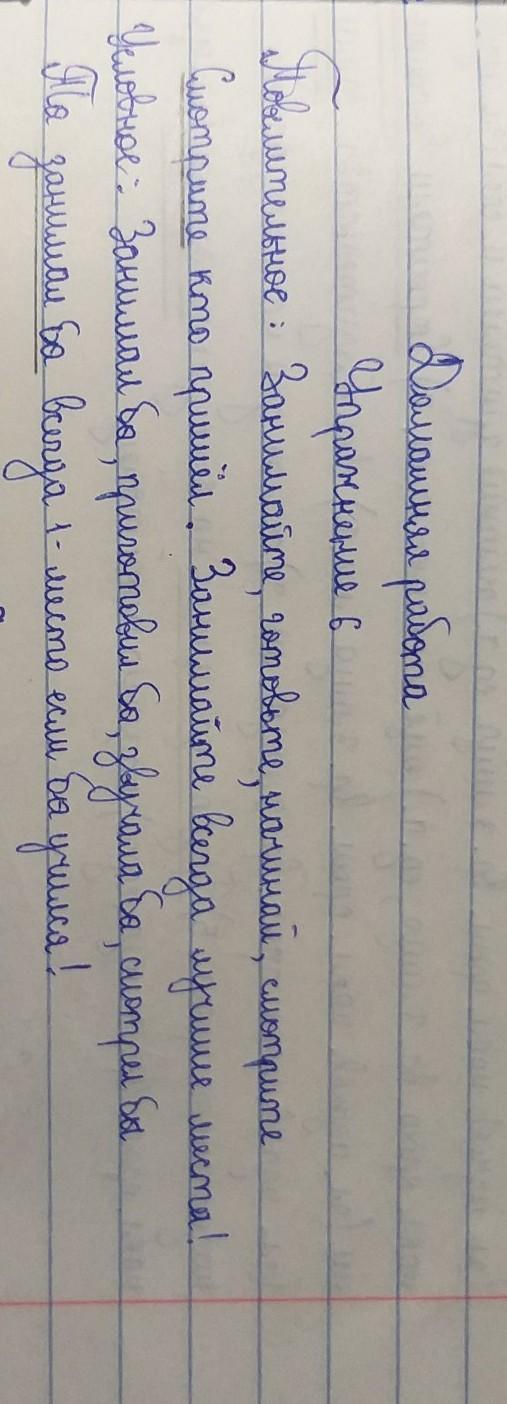 Домашняя работа
Упражнение 6
Повелительное: Занимайте, готовьте, начинай, смотрите
Смотрите кто пришёл. Занимайте всегда лучшие места!
Условное: Занимал бы, приготовил бы, звучала бы, смотрел бы
Ты занимал бы всегда 1-место если бы учился!